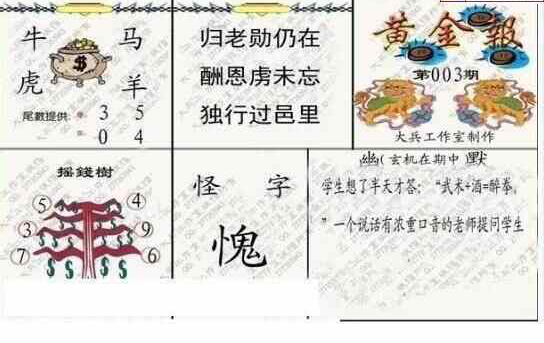 牛 马
虎 羊
尾數提供: 3 5
0 4
归老勋仍在
酬恩虏未忘
独行过邑里
黄金報
第003期
大兵工作室制作
摇錢樹
5 4
3 9
7 6
怪 字
愧
幽(玄机在期中 默
学生想了半天才答:“武术+酒=醉拳。
”一个说话有浓重口音的老师提问学生